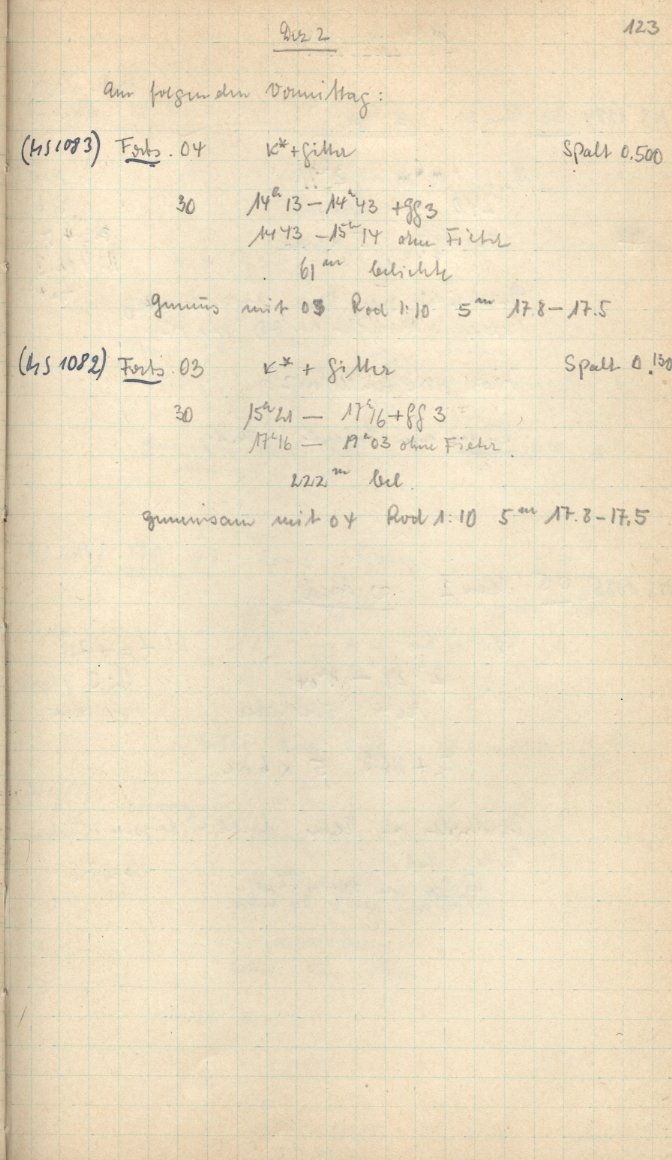 123
Dez 2
Am folgenden Vormittag:
(MS 1083) Forts. 04 K*+Gitter Spalt 0.500
30 14ʰ13 – 14ʰ43 +GG3
1443 – 15ʰ14 ohne Filter
61ᵐ belichte
gemeins mit 03 Rod 1:10 5ᵐ 17.8 – 17.5
(MS 1082) Forts. 03 K* + Gitter Spalt 0.130
30 15ʰ21 – 17ʰ16 +GG 3
17ʰ16 – 19ʰ03 ohne Filter.
222ᵐ bel.
gemeinsam mit 04 Rod 1:10 5ᵐ 17.8 – 17.5